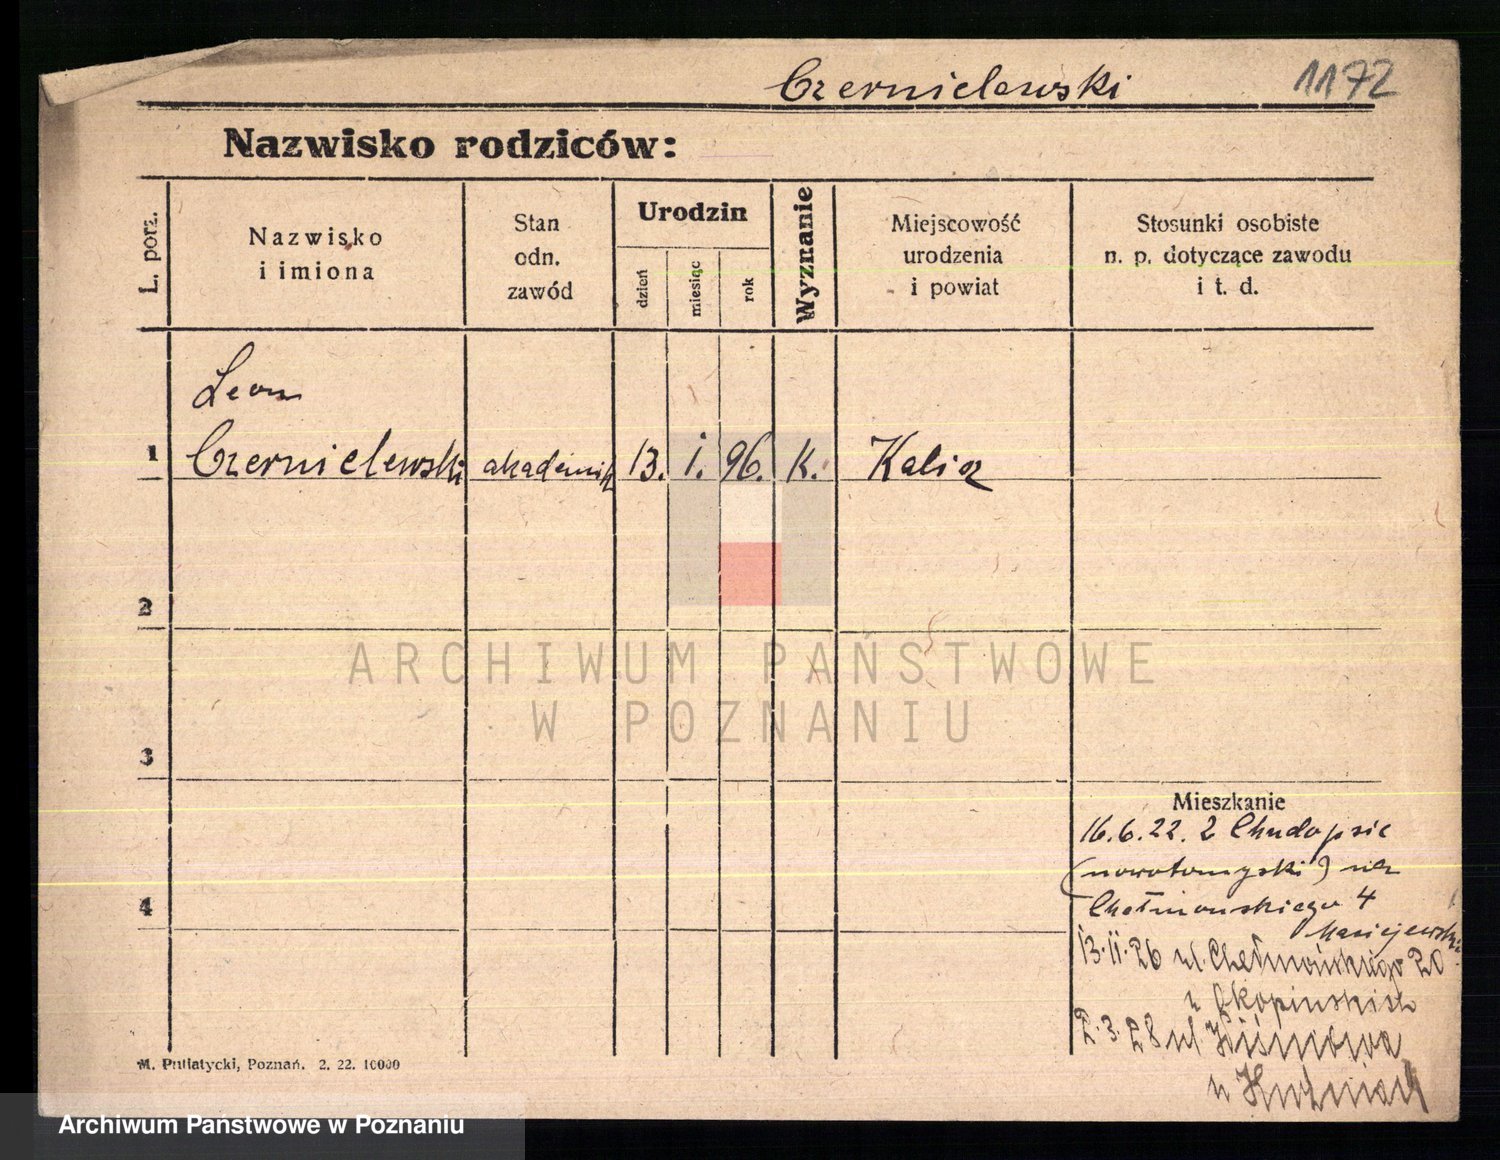 Czernielewski 1172
Nazwisko rodziców:
L. porz.
Nazwisko
i imiona
Stan
odn.
zawód
Urodzin
dzień
miesiąc
rok
Wyznanie
Miejscowość
urodzenia
i powiat
Stosunki osobiste
n. p. dotyczące zawodu
i t. d.
Leon
1 Czernielewski akademik 13. I. 96. K. Kalisz
2
ARCHIWUM PAŃSTWOWE
W POZNANIU
3
Mieszkanie
16.6.22. z Chudopsic
(nowotomyski)
4
Chełmońskiego 4
Maciejewski
13.II.26 ul. Chełmońskiego 20
u
2.3.28 ul. Wiśniowa
u
M. Putiatycki, Poznań. 2. 22. 10000
Archiwum Państwowe w Poznaniu